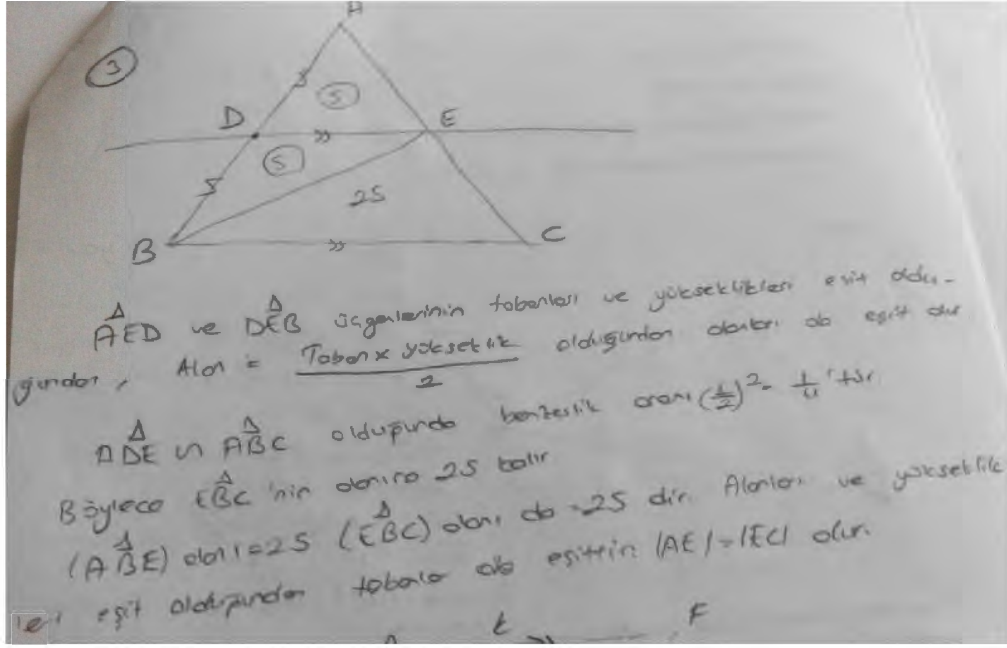 3
A
S
D
E
S
2S
B
C
AED ve DEB üçgenlerinin tabanları ve yükseklikleri eşit oldu-
ğundan, Alan = Taban x yükseklik / 2 olduğundan alanları da eşit olur
ADE ∽ ABC olduğunda benzerlik oranı (1/2)² = 1/4 'tür
Böylece EBC 'nin alanına 2S kalır
(ABE) alanı = 2S (EBC) alanı da = 2S dir. Alanları ve yükseklik
leri eşit olduğundan tabanlar da eşittir. |AE| = |EC| olur.
E
F